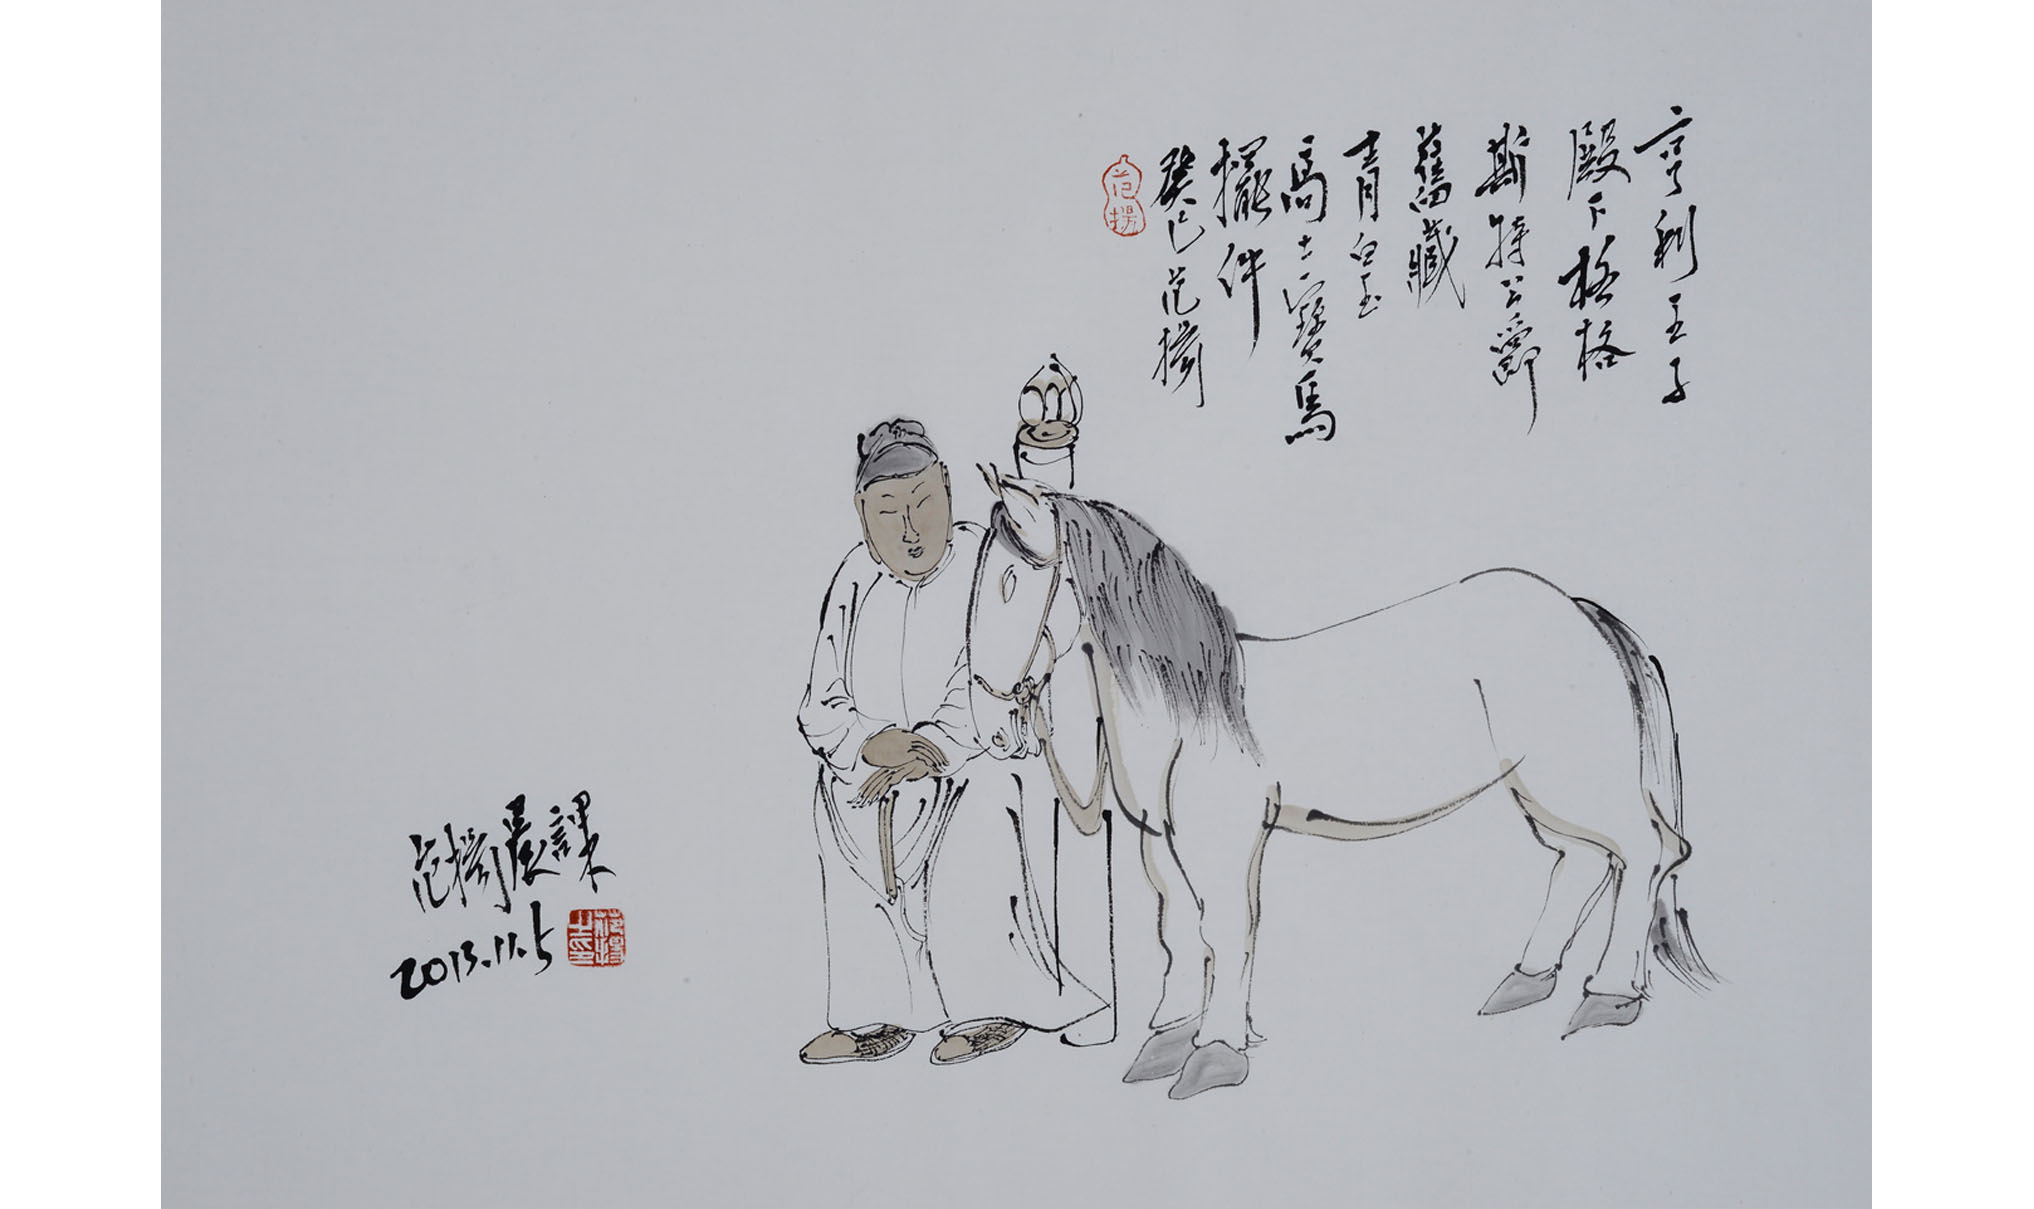 亨利王子
殿下格格
斯特公爵
舊藏
青白玉
高士寶馬
擺件
癸巳范揚
范揚
范揚晨課
2013.11.5
范揚之印